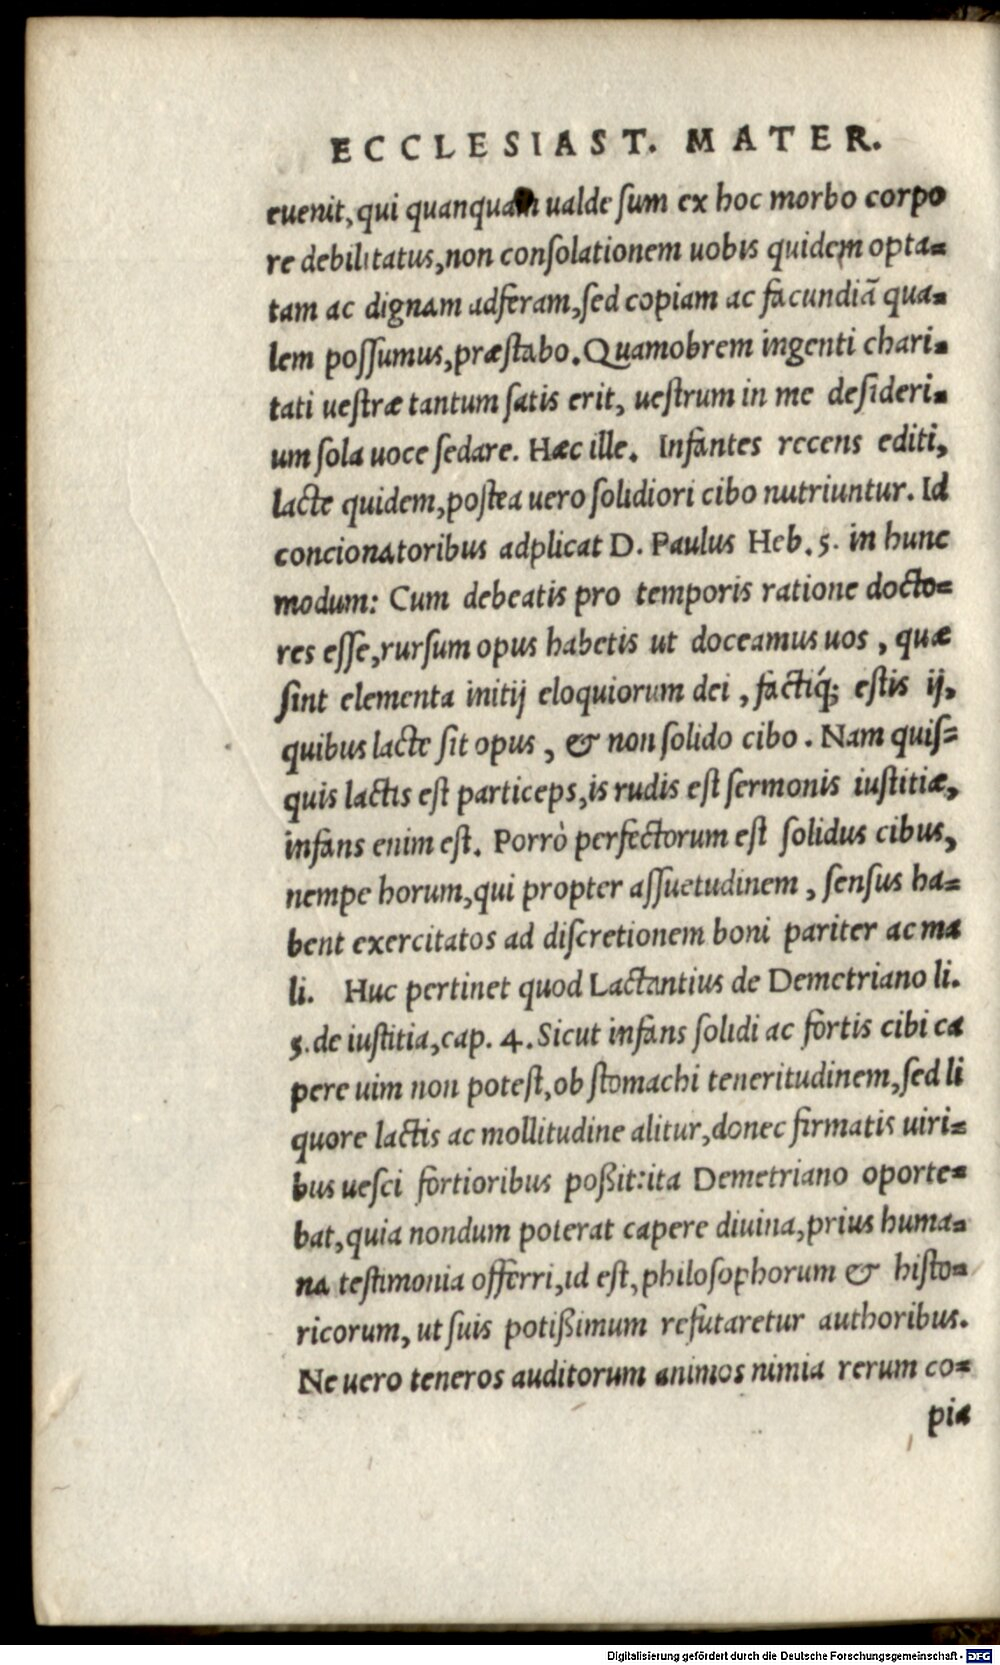 ECCLESIAST. MATER.
euenit, qui quanquam ualde ſum ex hoc morbo corpo
re debilitatus, non conſolationem uobis quidem opta=
tam ac dignam adferam, ſed copiam ac facundiã qua=
lem poſſumus, præſtabo. Quamobrem ingenti chari=
tati ueſtræ tantum ſatis erit, ueſtrum in me deſideri=
um ſola uoce ſedare. Hæc ille. Infantes recens editi,
lacte quidem, poſtea uero ſolidiori cibo nutriuntur. Id
concionatoribus adplicat D. Paulus Heb. 5. in hunc
modum: Cum debeatis pro temporis ratione docto=
res eſſe, rurſum opus habetis ut doceamus uos, quæ
ſint elementa initij eloquiorum dei, factiq́; eſtis ij,
quibus lacte ſit opus, & non ſolido cibo. Nam quiſ=
quis lactis eſt particeps, is rudis eſt ſermonis iuſtitiæ,
infans enim eſt. Porrò perfectorum eſt ſolidus cibus,
nempe horum, qui propter aſſuetudinem, ſenſus ha=
bent exercitatos ad diſcretionem boni pariter ac ma
li. Huc pertinet quod Lactantius de Demetriano li.
5. de iuſtitia, cap. 4. Sicut infans ſolidi ac fortis cibi ca
pere uim non poteſt, ob ſtomachi teneritudinem, ſed li
quore lactis ac mollitudine alitur, donec firmatis uiri=
bus ueſci fortioribus poßit: ita Demetriano oporte=
bat, quia nondum poterat capere diuina, prius huma=
na teſtimonia offerri, id eſt, philoſophorum & hiſto=
ricorum, ut ſuis potißimum refutaretur authoribus.
Ne uero teneros auditorum animos nimia rerum co=
pia
Digitalisierung gefördert durch die Deutsche Forschungsgemeinschaft - DFG